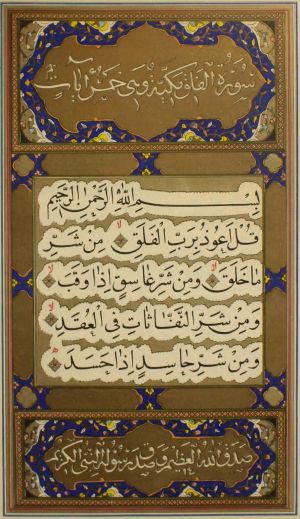 سورة الفلق مكية وهي خمس آيات
بسم الله الرحمن الرحيم
قل أعوذ برب الفلق من شر
ما خلق ومن شر غاسق إذا وقب
ومن شر النفاثات في العقد
ومن شر حاسد إذا حسد
صدق الله العظيم وصدق رسوله النبي الكريم